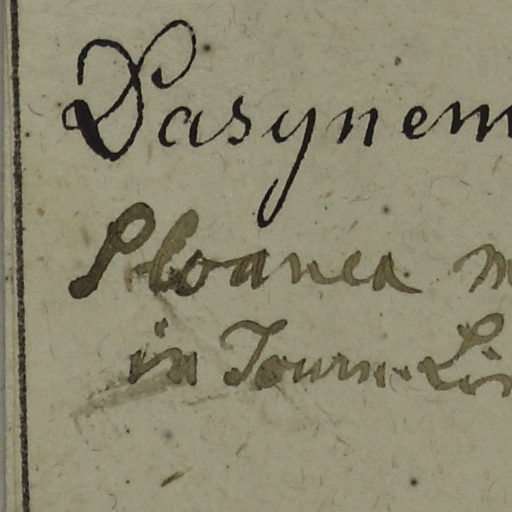 Dasynem
Sloanea m
in Journ. Lin